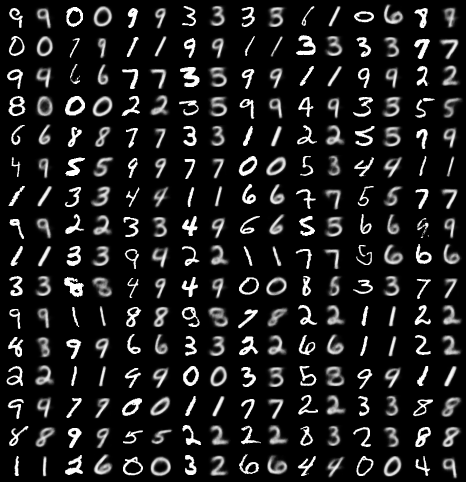 9 9 0 0 9 9 3 3 3 3 6 1 0 6 8 7
0 0 7 9 1 1 9 9 1 1 3 3 3 3 7 7
9 9 6 6 7 7 3 3 9 9 1 1 9 9 2 2
8 0 0 0 2 2 3 5 9 9 4 9 3 3 5 5
6 6 8 8 7 7 3 3 1 1 2 2 5 5 7 9
4 9 5 5 9 9 7 7 0 0 5 3 4 4 1 1
1 1 3 3 4 4 1 1 6 6 7 7 5 5 7 7
9 9 2 2 3 3 4 9 6 6 5 3 6 6 9 9
1 1 3 3 9 4 2 2 1 1 7 7 5 6 6 6
3 3 8 8 4 9 4 9 0 0 8 5 3 3 7 7
9 9 1 1 8 8 9 8 7 8 2 2 1 1 2 2
8 3 9 9 6 6 3 3 2 2 6 6 1 1 2 2
2 2 1 1 9 9 0 0 3 3 5 8 9 9 1 1
9 4 7 7 0 0 1 1 7 7 2 2 3 3 8 8
8 8 9 9 5 5 2 2 2 2 8 3 2 3 8 8
1 1 2 6 0 0 3 2 6 6 4 4 0 0 4 9